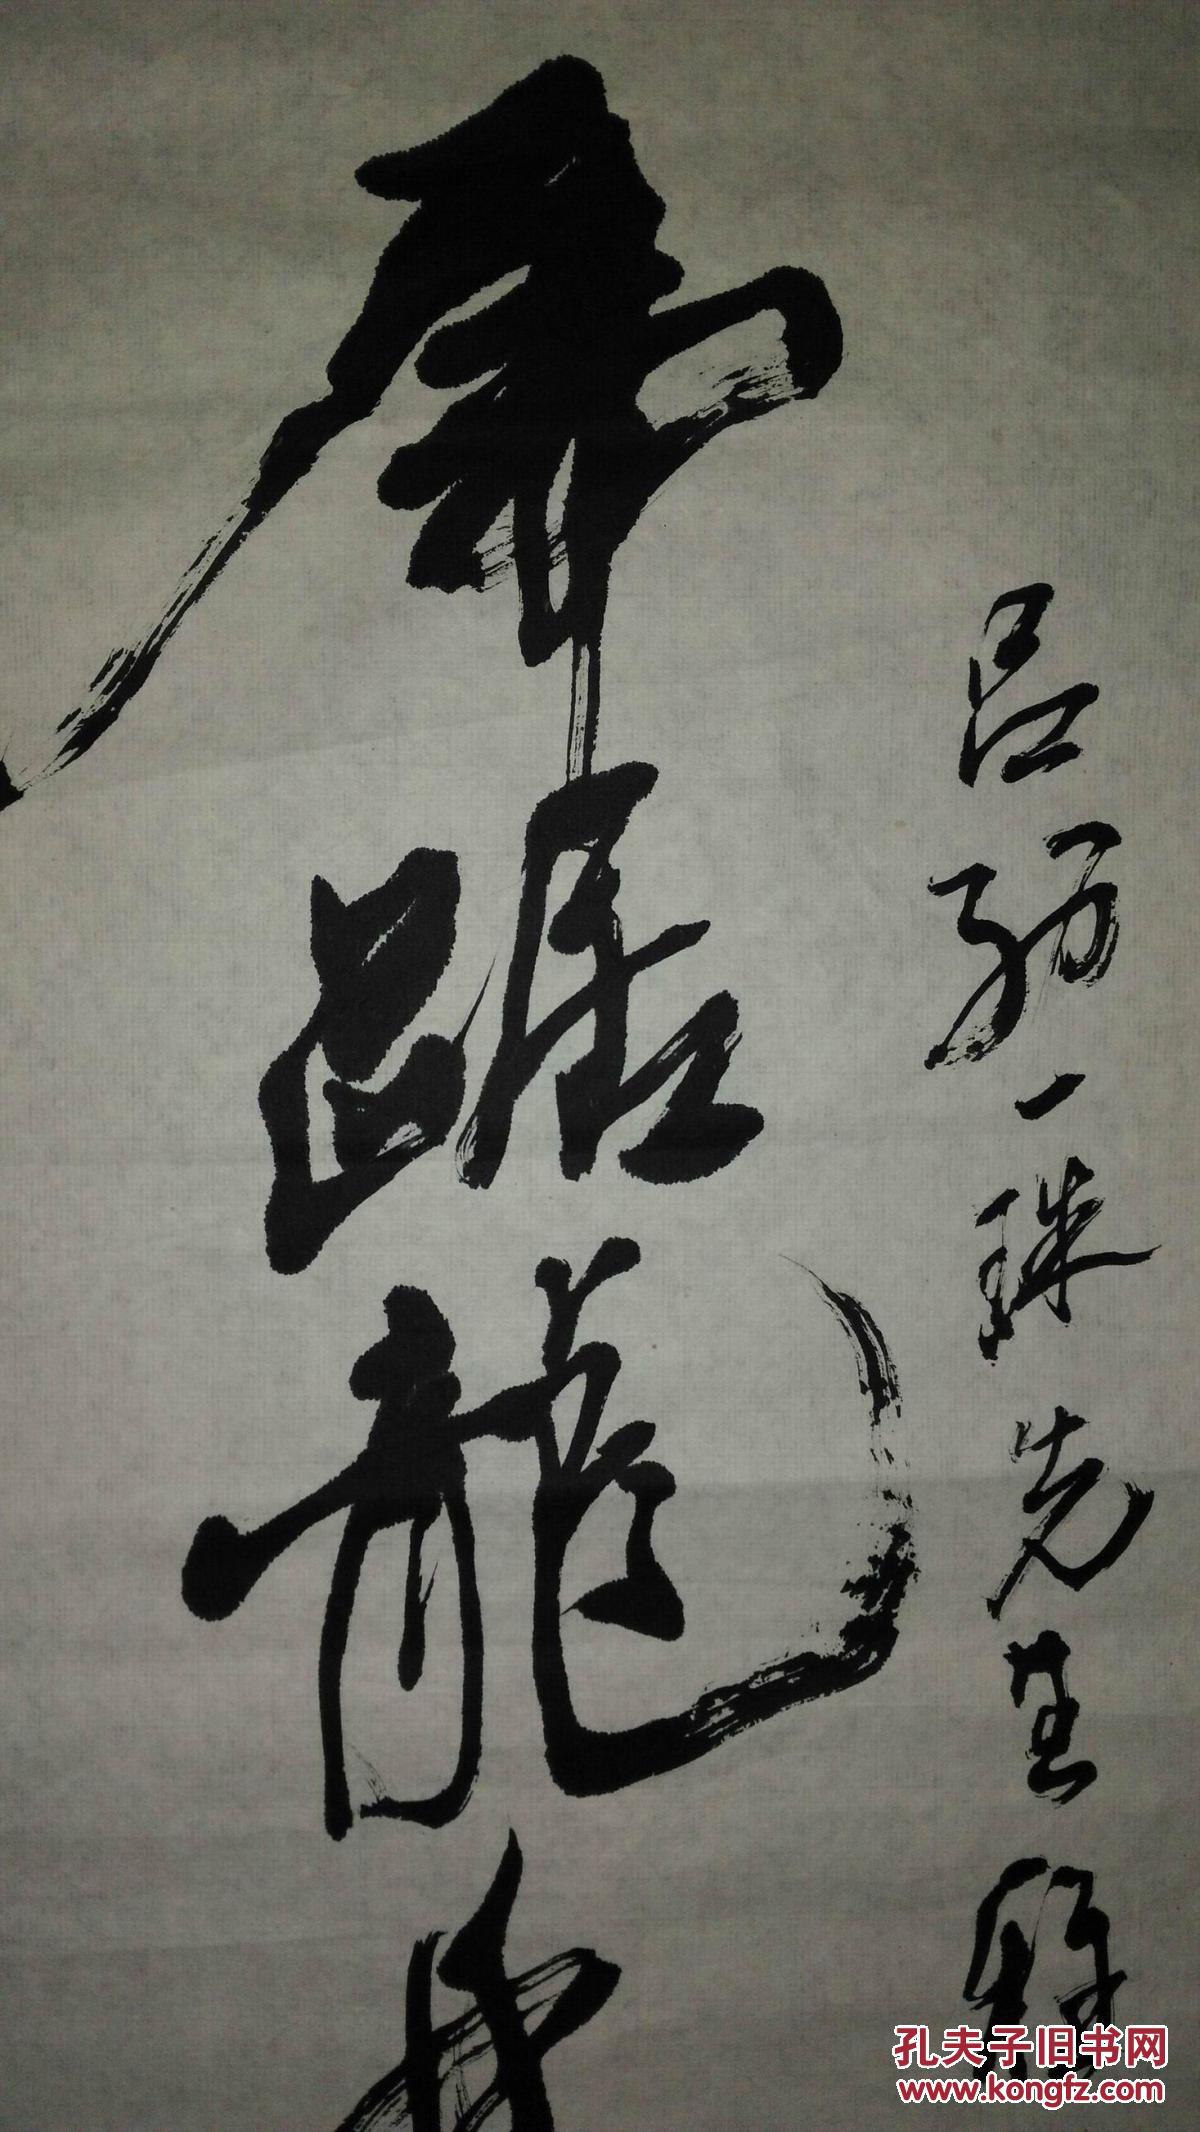 吕
一珠先生雅
虎踞龍
孔夫子旧书网
www.kongfz.com